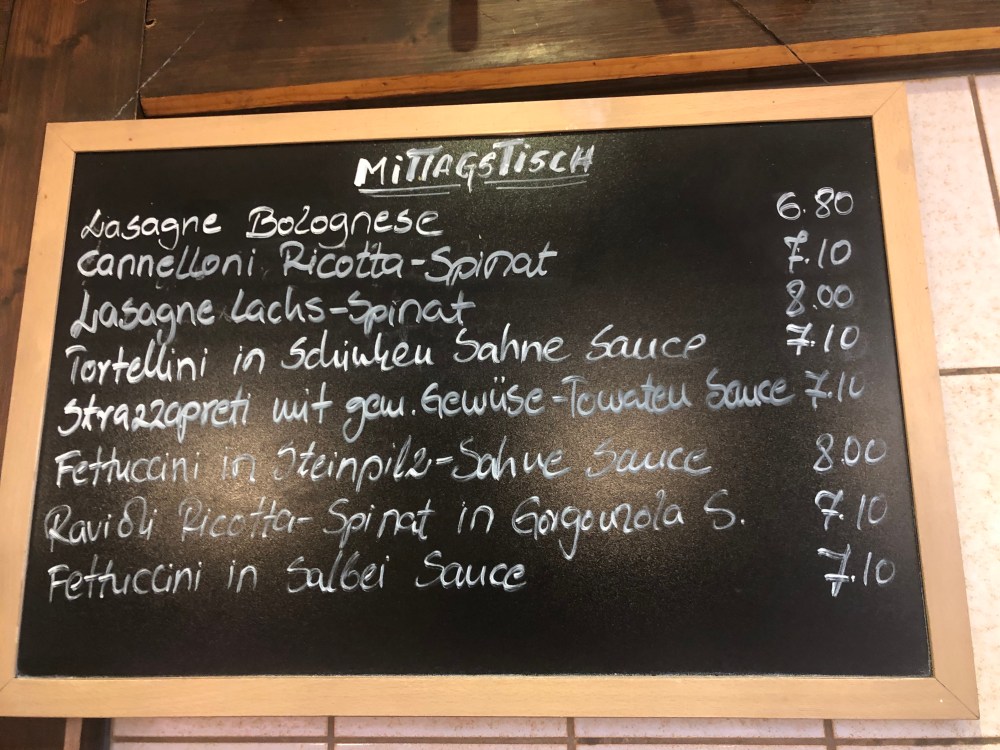 MITTAGSTISCH
Lasagne Bolognese 6.80
Cannelloni Ricotta-Spinat 7.10
Lasagne Lachs-Spinat 8.00
Tortellini in Schinken Sahne Sauce 7.10
Strazzapreti mit gem. Gewüse-Tomaten Sauce 7.10
Fettuccini in Steinpilz-Sahne Sauce 8.00
Ravioli Ricotta-Spinat in Gorgonzola S. 7.10
Fettuccini in Salbei Sauce 7.10